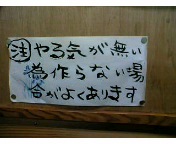 注やる気が無い
為作らない場
合がよくあります